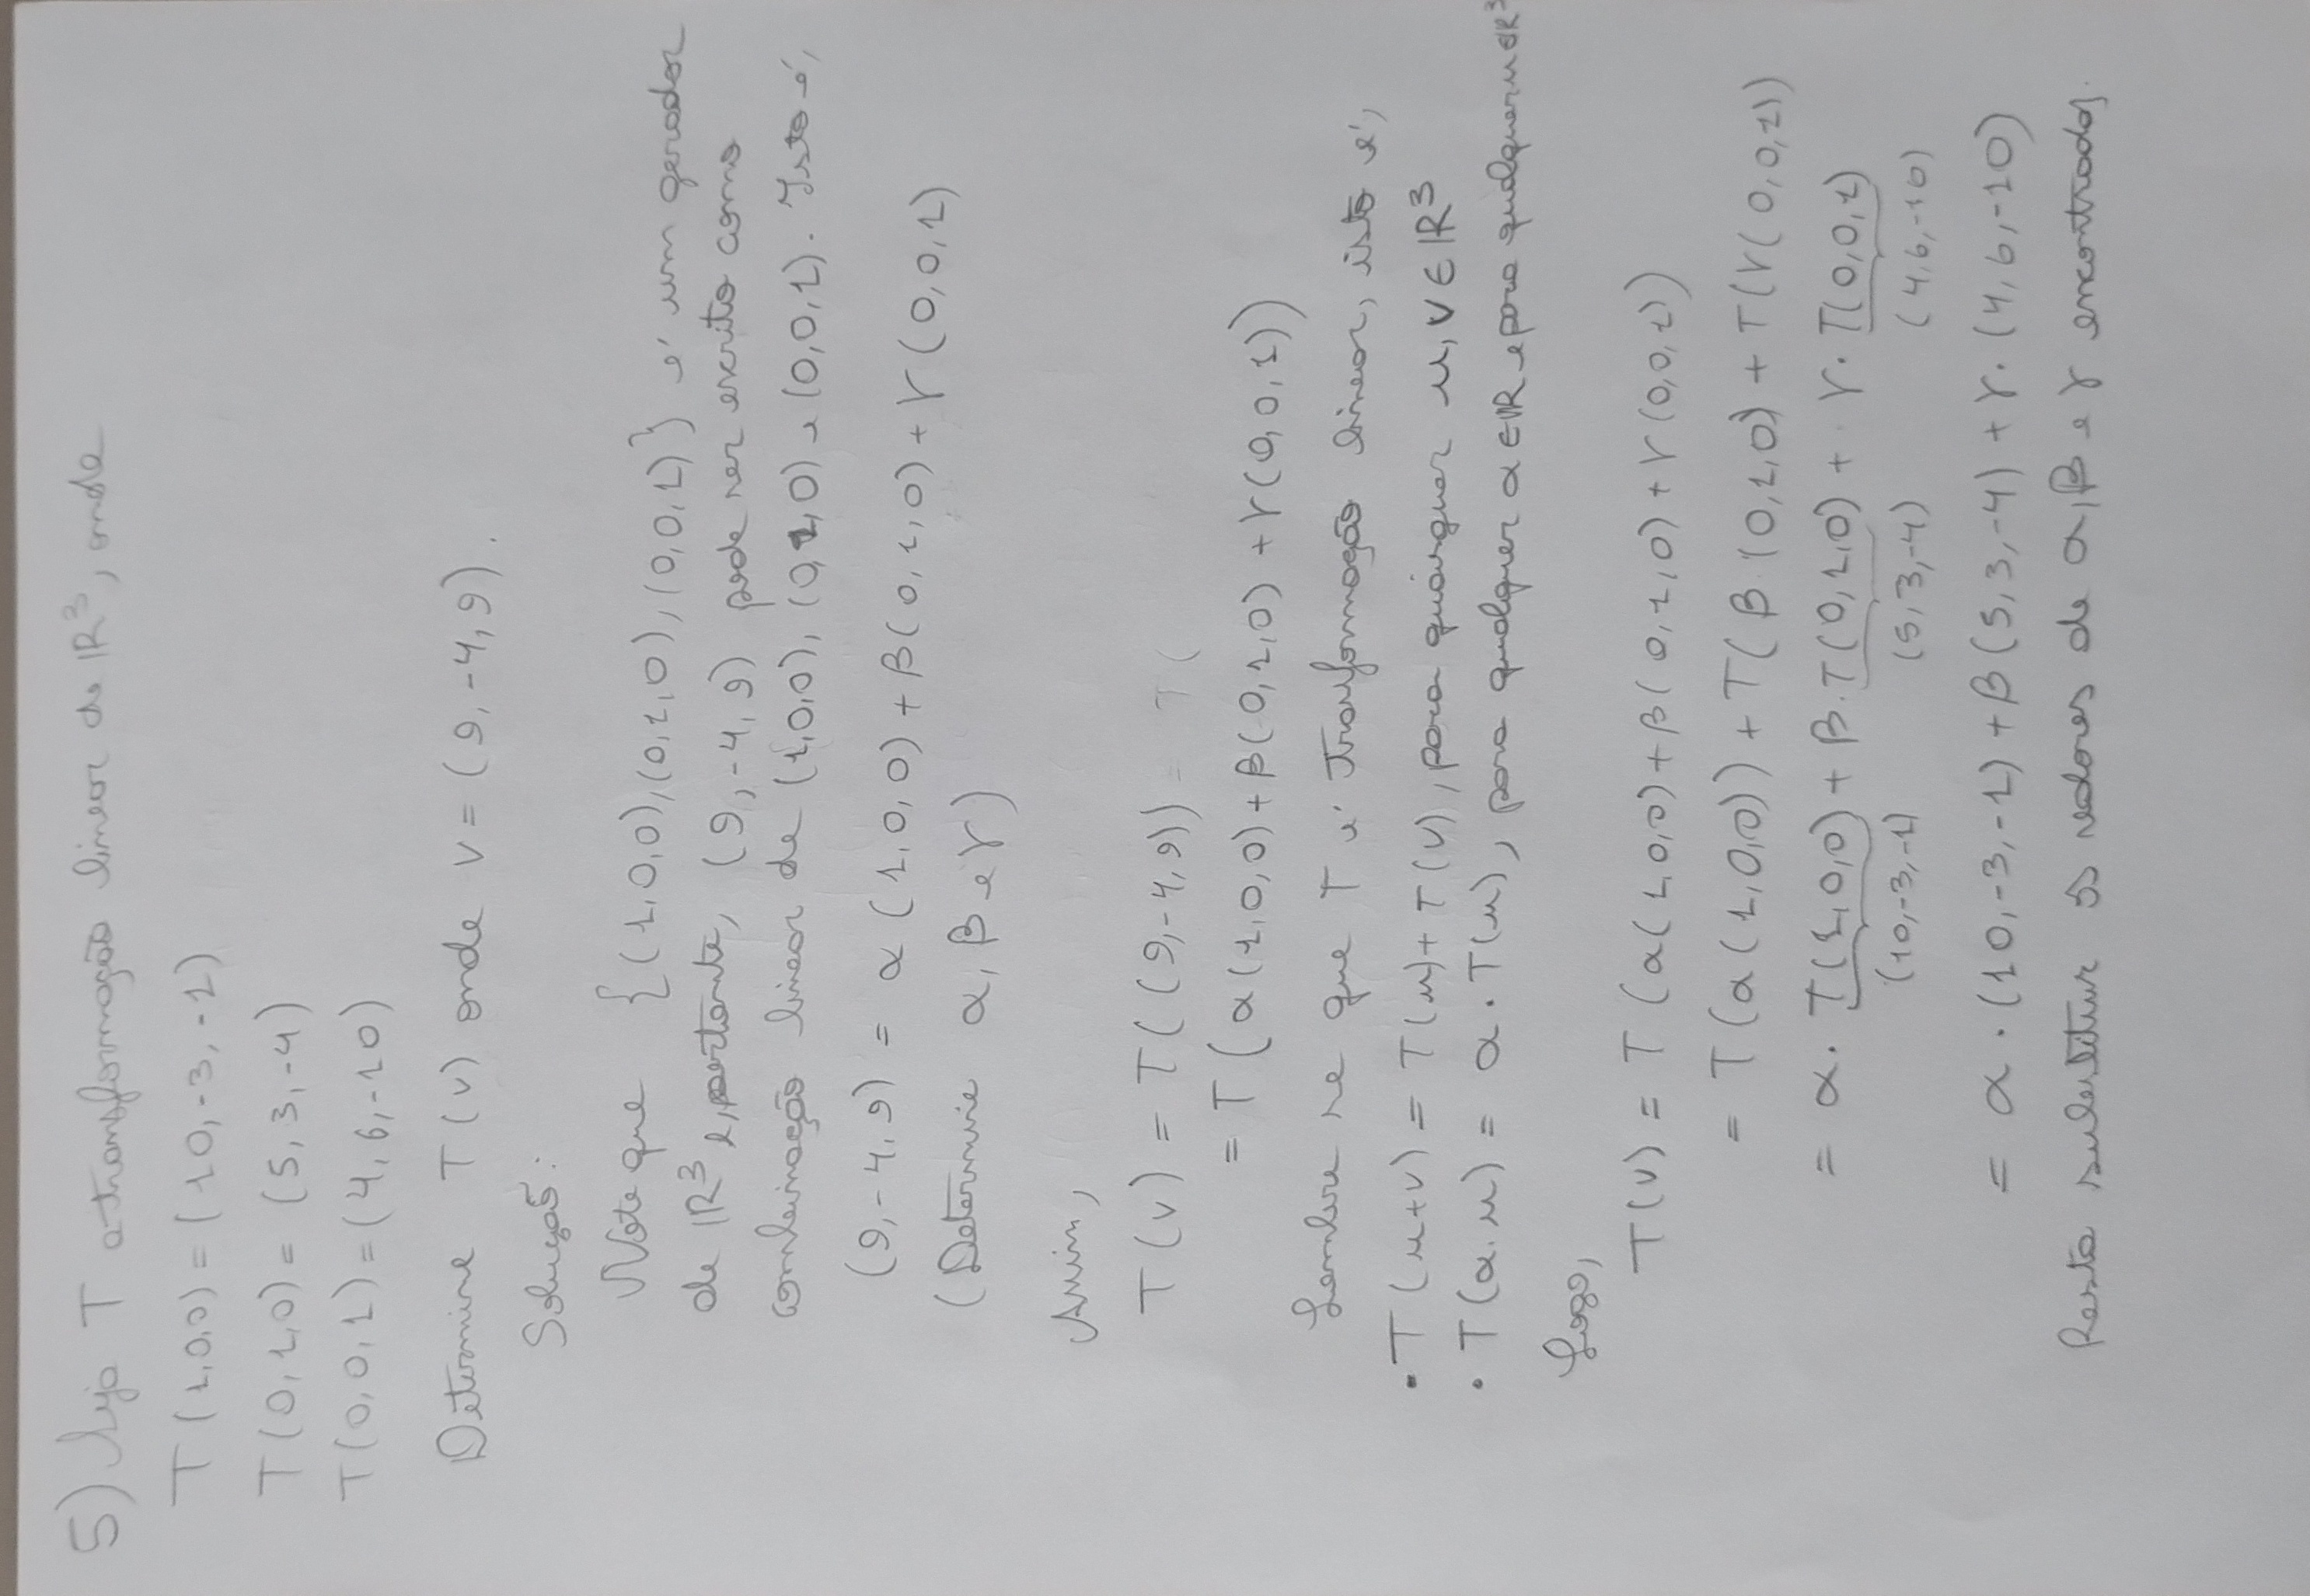 5) Seja T a transformação linear de IR³, onde
T(1,0,0) = (10,-3,-1)
T(0,1,0) = (5,3,-4)
T(0,0,1) = (4,6,-10)
Determine T(v) onde v = (9,-4,9).
Solução:
Note que {(1,0,0),(0,1,0),(0,0,1)} é um gerador
de IR³ e, portanto, (9,-4,9) pode ser escrito como
combinação linear de (1,0,0), (0,1,0) e (0,0,1). Isto é,
(9,-4,9) = α(1,0,0) + β(0,1,0) + γ(0,0,1)
(Determine α, β e γ)
Assim,
T(v) = T((9,-4,9)) = T(
= T(α(1,0,0) + β(0,1,0) + γ(0,0,1))
Lembre se que T é Transformação linear, isto é,
• T(u+v) = T(u) + T(v), para quaisquer u, v ∈ IR³
• T(α.u) = α . T(u), para qualquer α ∈ IR e para qualquer u ∈ IR³
Logo,
T(v) = T(α(1,0,0) + β(0,1,0) + γ(0,0,1))
= T(α(1,0,0)) + T(β.(0,1,0) + T(γ(0,0,1))
= α. T(1,0,0) + β. T(0,1,0) + γ. T(0,0,1)
(10,-3,-1) (5,3,-4) (4,6,-10)
= α . (10,-3,-1) + β(5,3,-4) + γ. (4,6,-10)
Resta substituir os valores de α, β e γ encontrados.